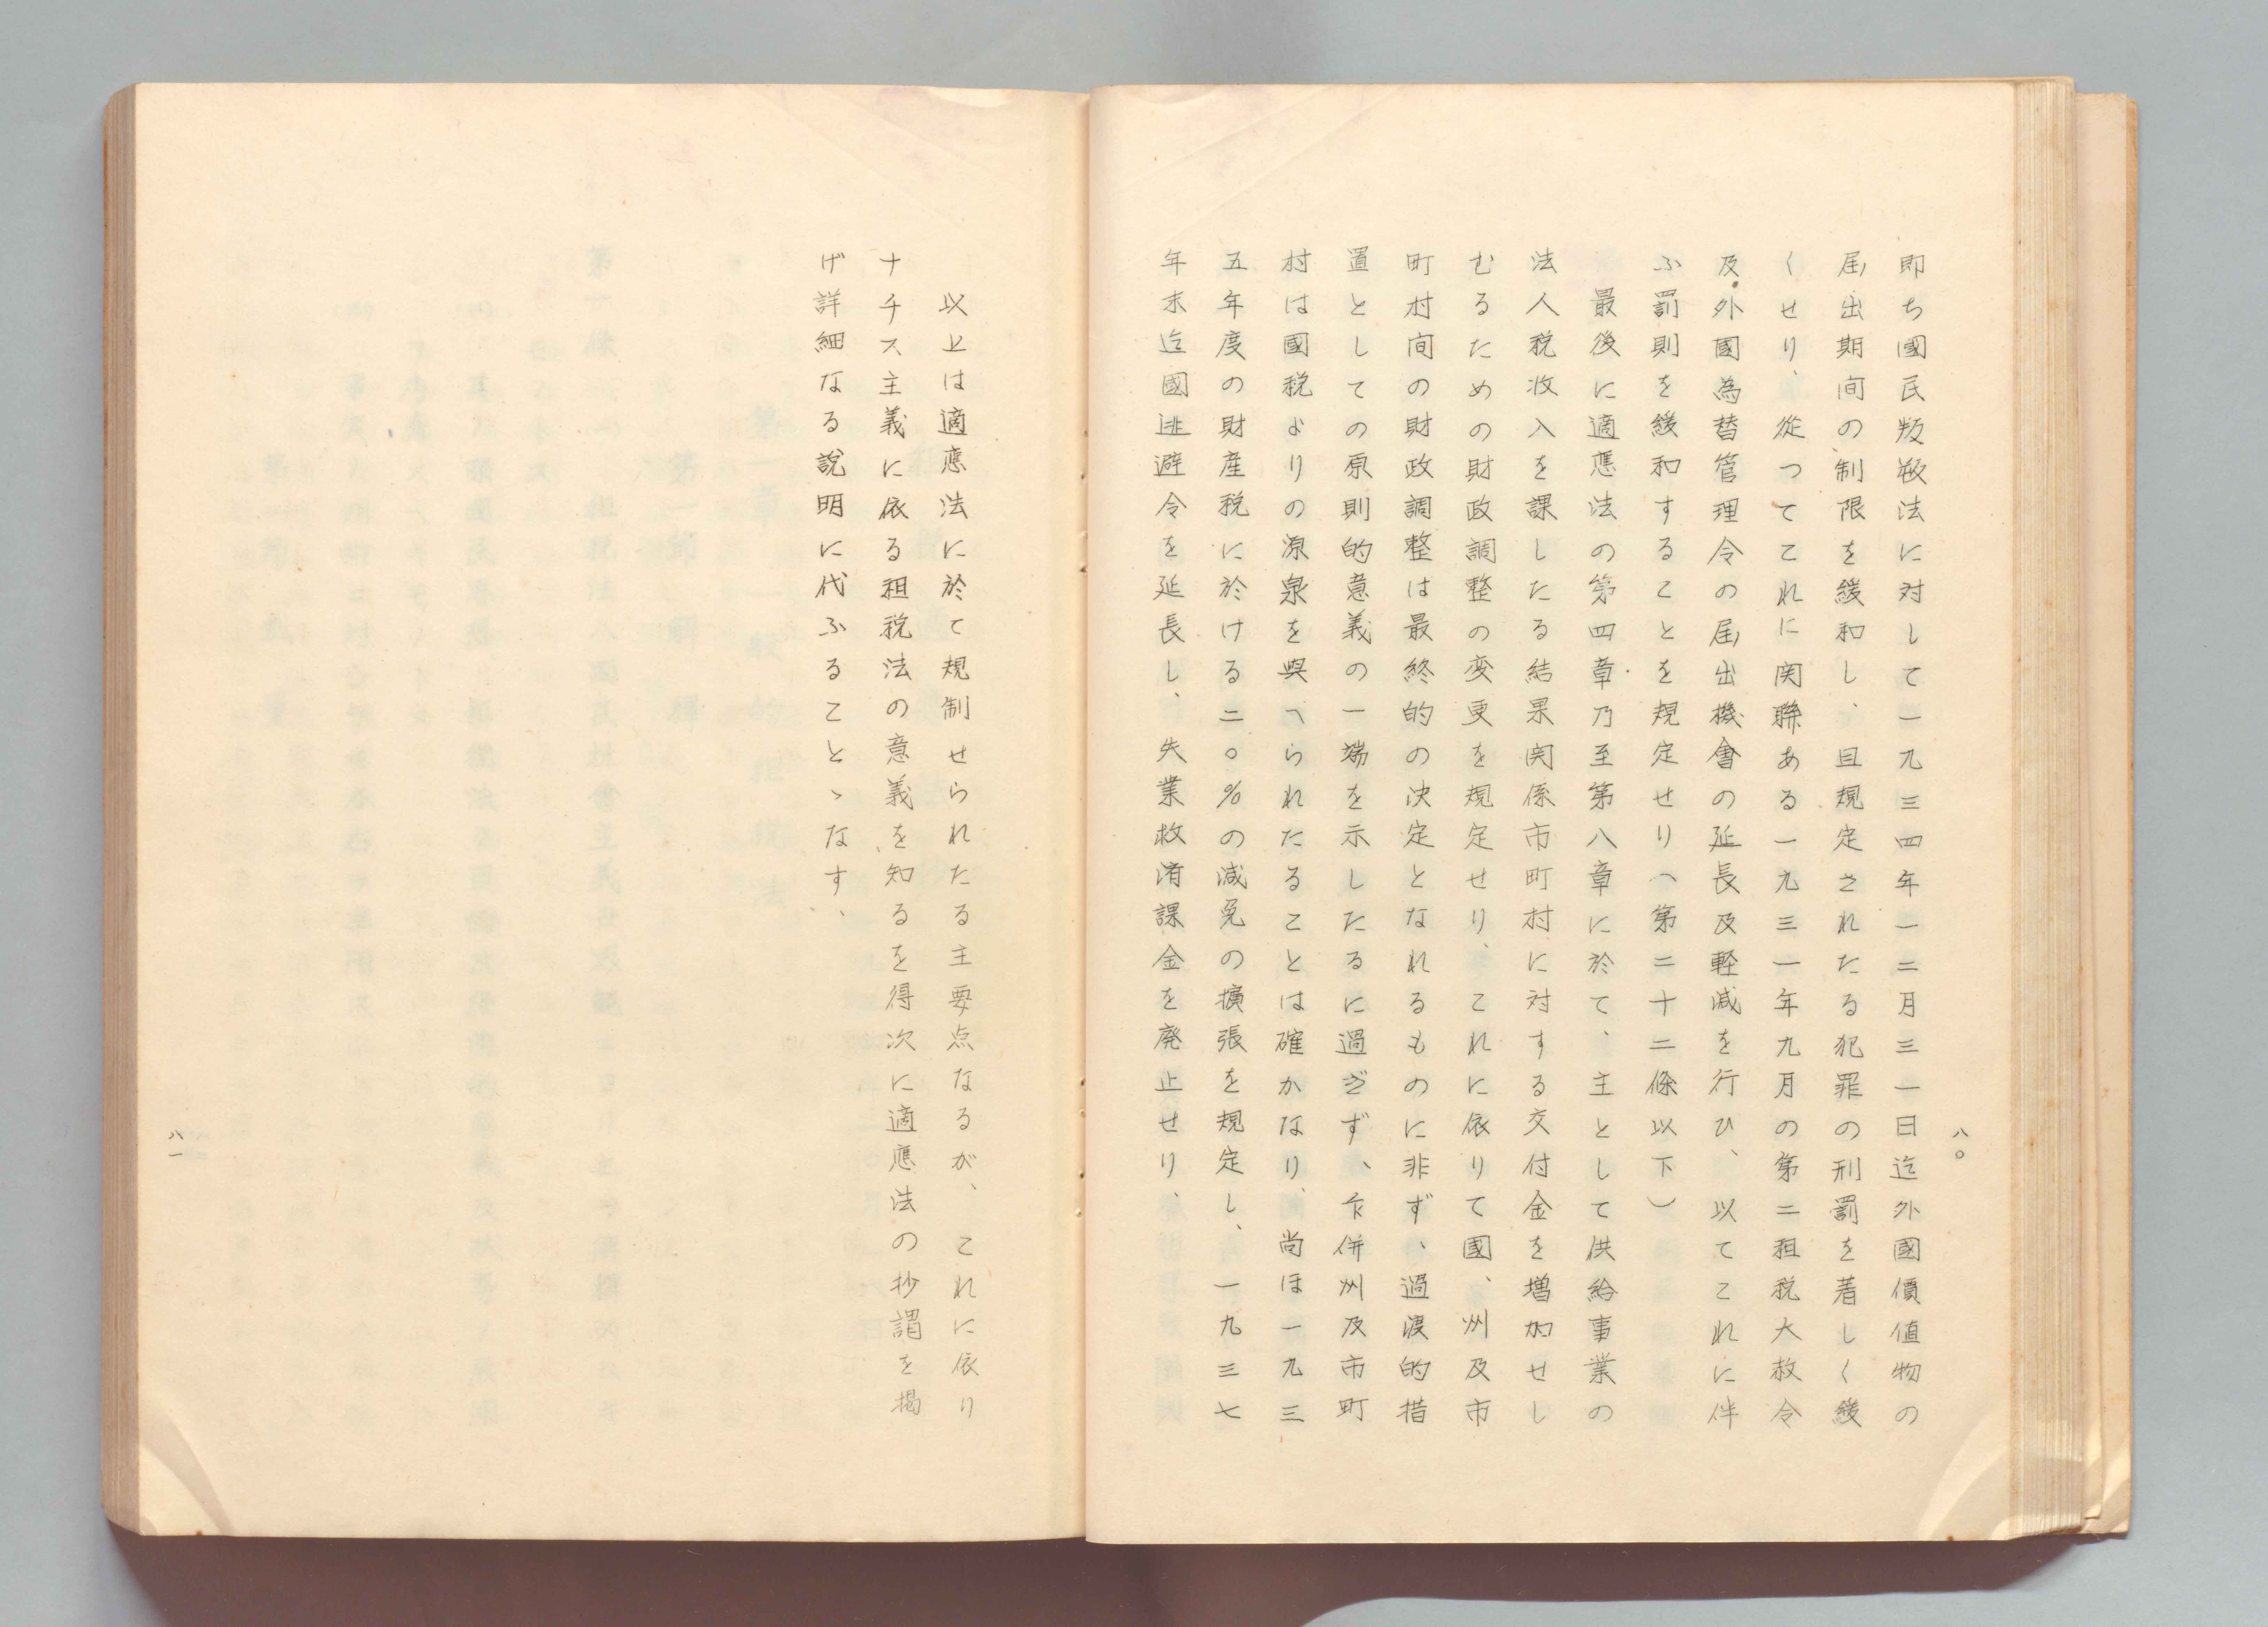 八〇
即ち國民叛敬法に対して一九三四年一二月三一日迄外國價値物の
届出期间の制限を緩和し、且規定されたる犯罪の刑罰を著しく緩
くせり、従つてこれに関聯ある一九三一年九月の第二租税大赦令
及外國為替管理令の届出機會の延長及軽減を行ひ、以てこれに伴
ふ罰則を緩和することを規定せり（第二十二條以下）
最後に適應法の第四章乃至第八章に於て、主として供給事業の
法人税收入を課したる結果関係市町村に対する交付金を増加せし
むるための財政調整の変更を規定せり、これに依りて國、州及市
町村间の財政調整は最終的の決定となれるものに非ず、過渡的措
置としての原則的意義の一端を示したるに過ぎず、併州及市町
村は國税よりの源泉を與へられたることは確かなり、尚ほ一九三
五年度の財産税に於ける二〇%の減免の擴張を規定し、一九三七
年末迄國逃避令を延長し、失業救済課金を廃止せり、
以上は適應法に於て規制せられたる主要点なるが、これに依り
ナチス主義に依る租税法の意義を知るを得次に適應法の抄謂を掲
げ詳細なる説明に代ふることゝなす、
八一